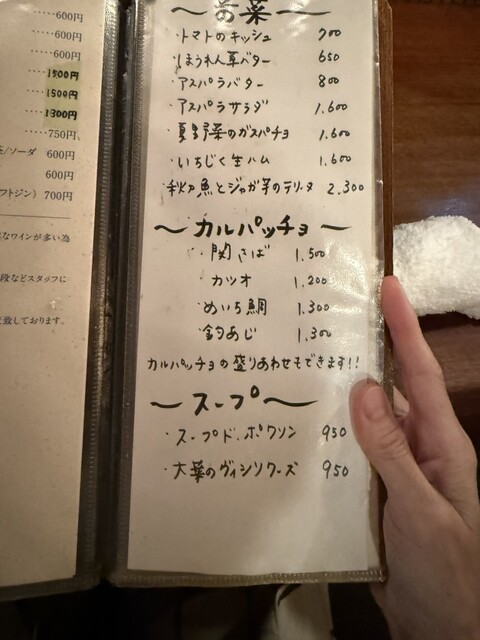 ‥‥600円
‥‥600円
‥‥600円
‥‥1500円
‥‥1500円
‥‥1300円
‥‥750円
/ソーダ 600円
600円
フトジン) 700円
なワインが多い為
段などスタッフに
致しております。
〜前菜〜
・トマトのキッシュ 700
・ほうれん草バター 650
・アスパラバター 800
・アスパラサラダ 1.600
・夏野菜のガスパチョ 1.600
・いちじく生ハム 1.600
・秋刀魚とジャガ芋のテリーヌ 2.300
〜カルパッチョ〜
・関さば 1.500
カツオ 1.200
・めいち鯛 1.300
・釣あじ 1.300
カルパッチョの盛りあわせもできます!!
〜スープ〜
・スープド・ポワソン 950
・大葉のヴィシソワーズ 950